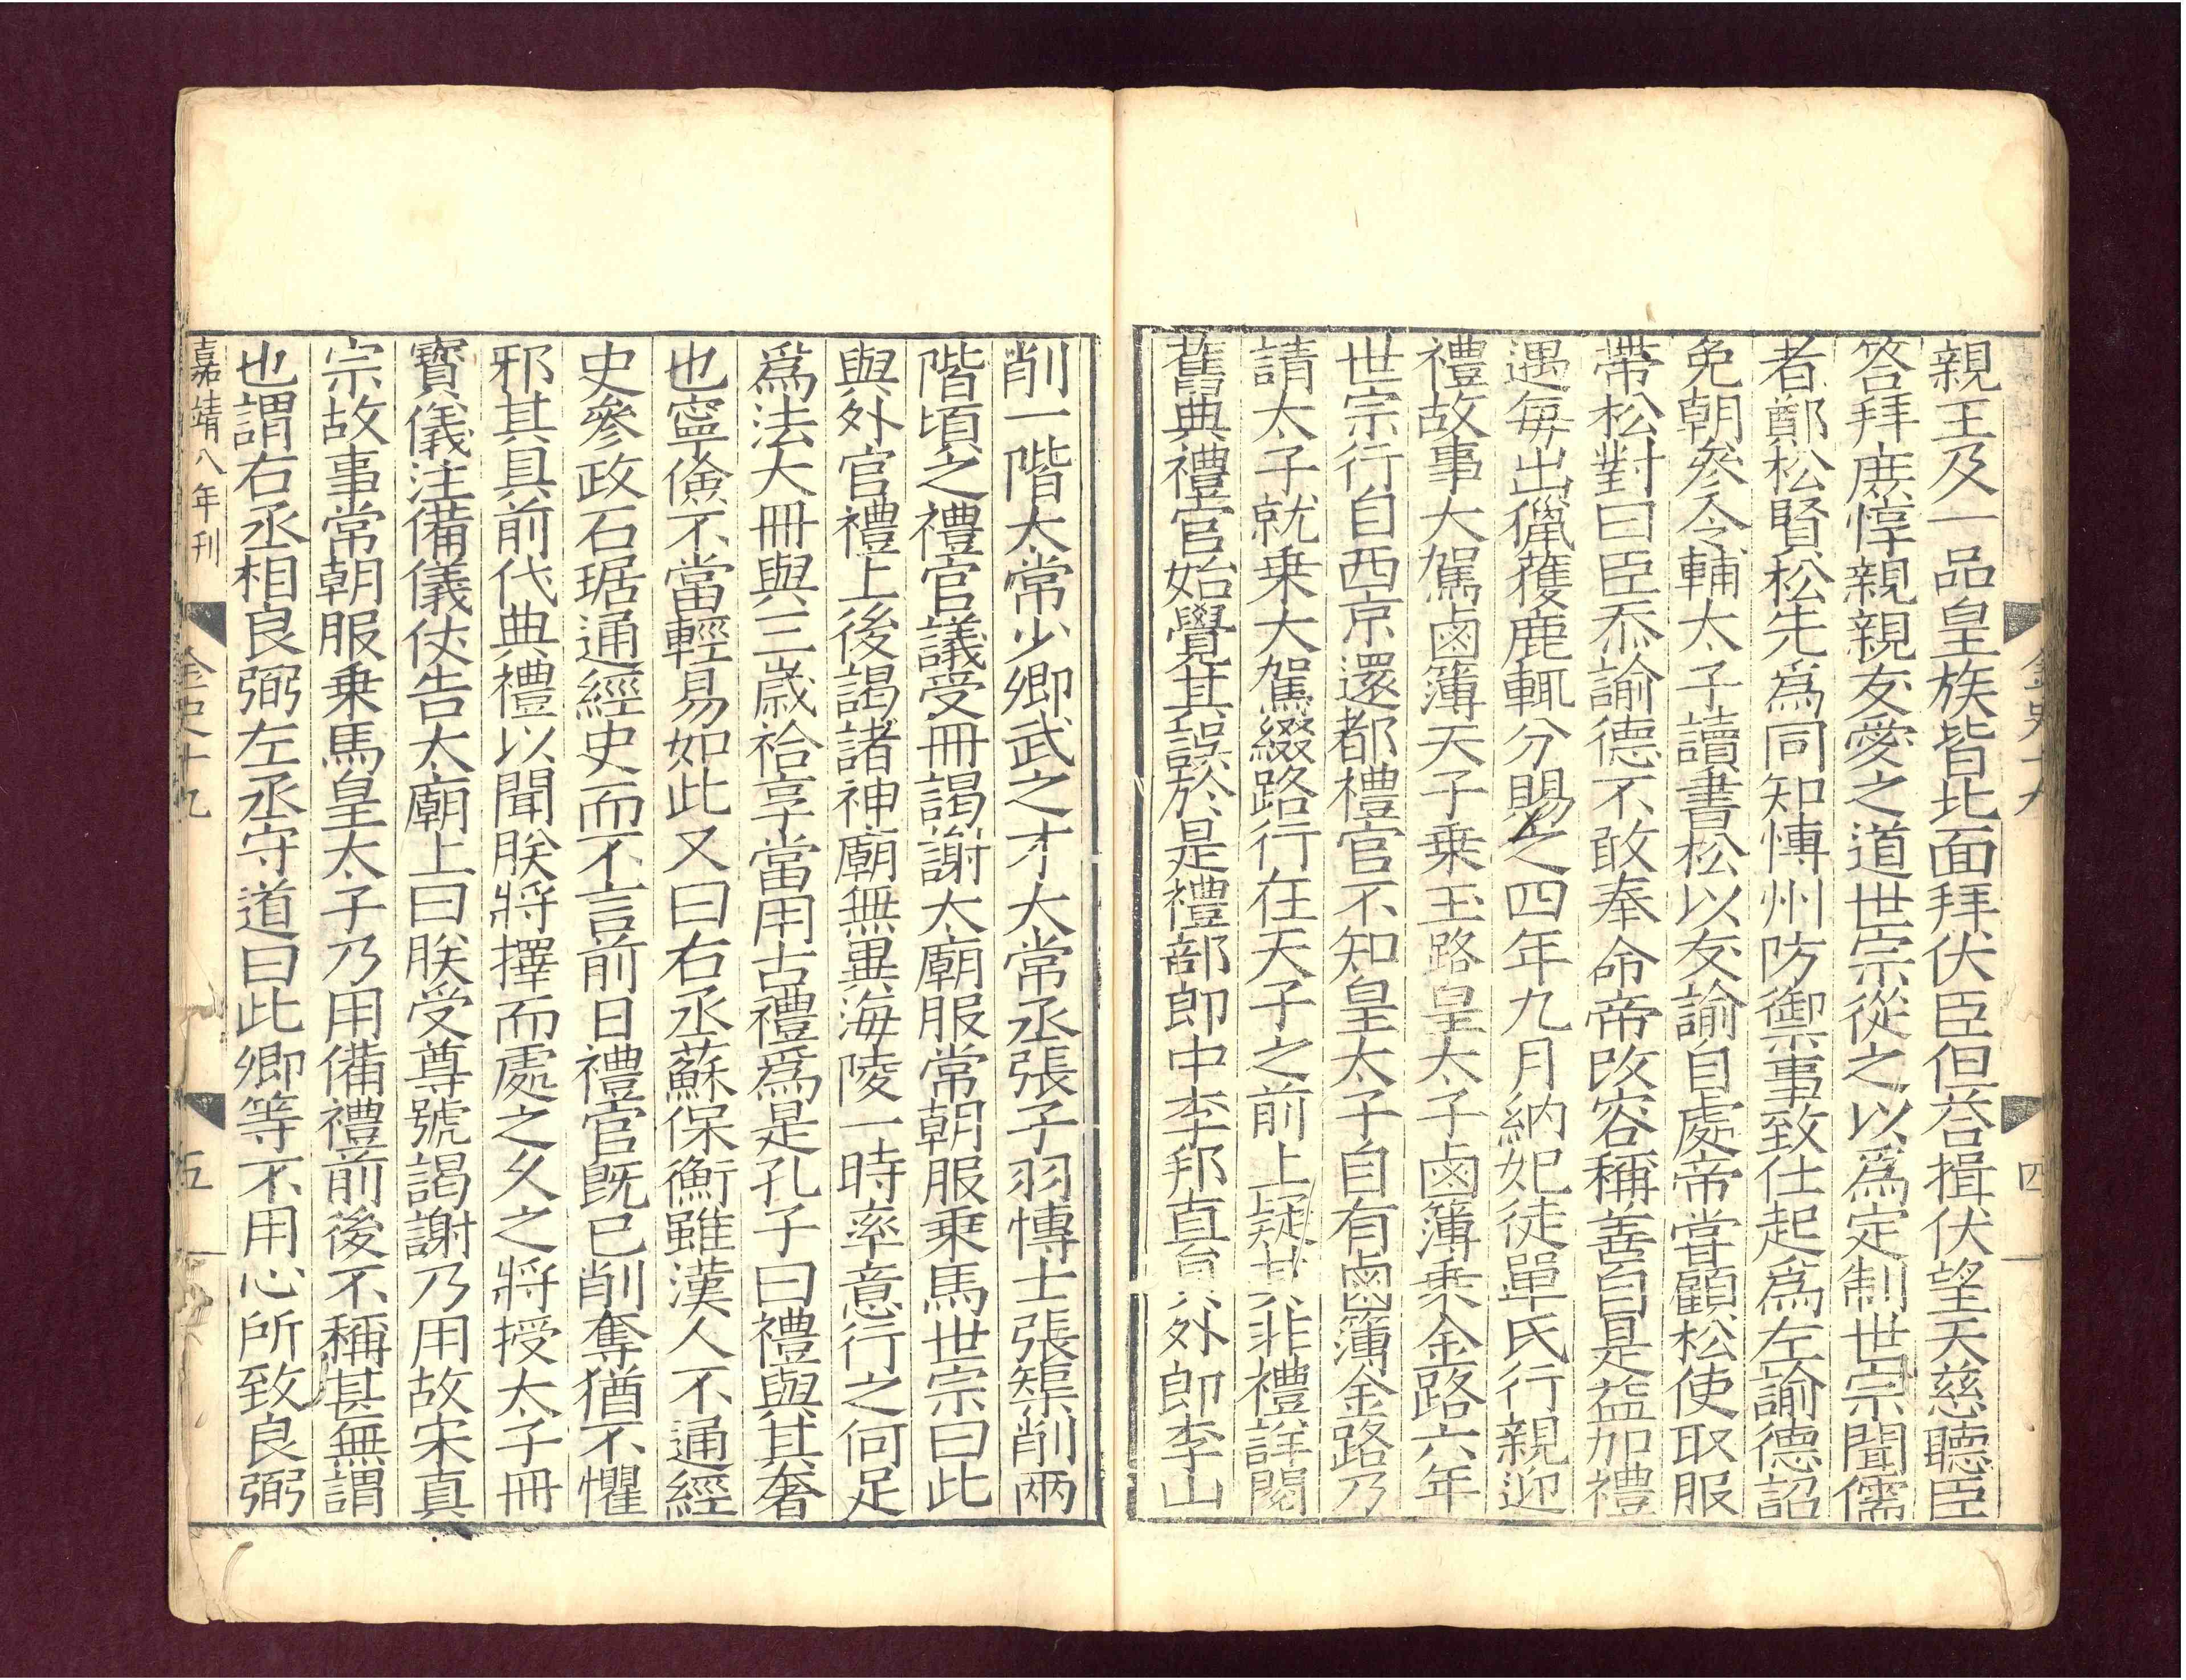 金史十九
四
親王及一品皇族皆北面拜伏臣但荅揖伏望天慈聽臣
答拜庶惇親親友愛之道世宗從之以爲定制世宗聞儒
者鄭松賢松先爲同知博州防禦事致仕起爲左諭德詔
免朝參令輔太子讀書松以友諭自處帝甞顧松使取服
帶松對曰臣忝諭德不敢奉命帝改容稱善自是益加禮
遇每出獵獲鹿輒分賜之四年九月納妃徒單氏行親迎
禮故事大駕鹵簿天子乗玉路皇太子鹵簿乗金路六年
世宗行自西京還都禮官不知皇太子自有鹵簿金路乃
請太子就乗大駕綴路行在天子之前上疑其非禮詳閱
舊典禮官始覺其誤於是禮部郎中李邦直員外郎李山
削一階太常少卿武之才太常丞張子羽博士張榘削兩
階頃之禮官議受冊謁謝太廟服常朝服乗馬世宗曰此
與外官禮上後謁諸神廟無異海陵一時率意行之何足
爲法大冊與三歲祫享當用古禮爲是孔子曰禮與其奢
也寧儉不當輕易如此又曰右丞蘇保衡雖漢人不通經
史參政石琚通經史而不言前日禮官既已削奪猶不懼
邪其具前代典禮以聞朕將擇而處之久之將授太子冊
寳儀注備儀仗告太廟上曰朕受尊號謁謝乃用故宋真
宗故事常朝服乗馬皇太子乃用備禮前後不稱甚無謂
也謂右丞相良弼左丞守道曰此卿等不用心所致良弼
嘉靖八年刊
金史十九
五